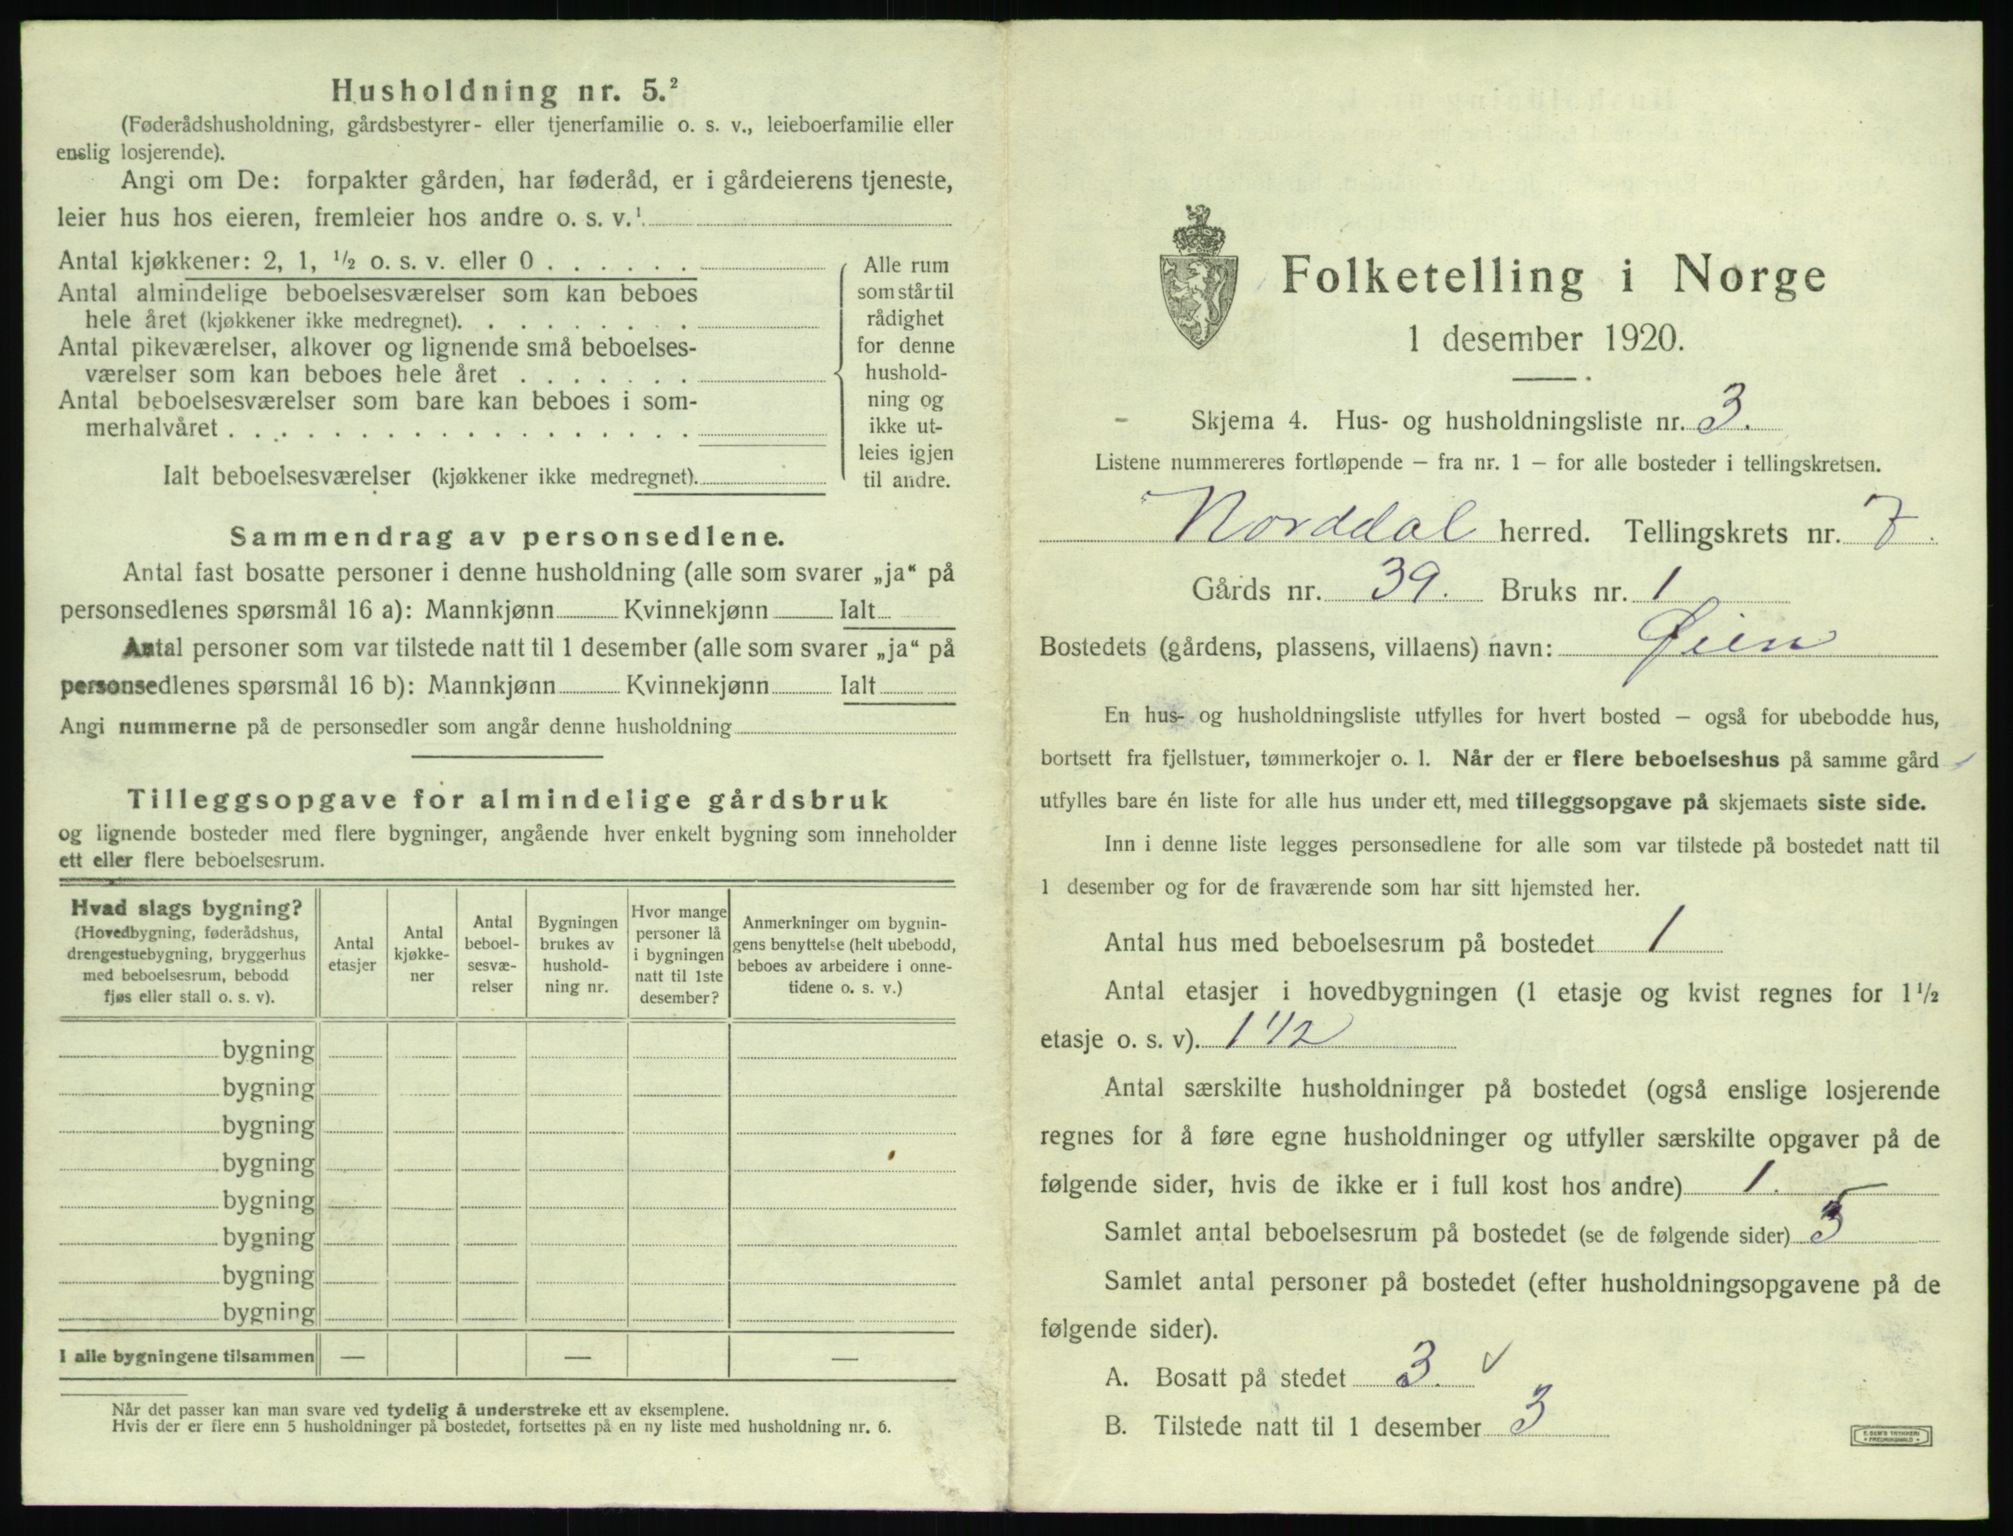 Husholdning nr. 5.²
(Føderådshusholdning, gårdsbestyrer- eller tjenerfamilie o. s. v., leieboerfamilie eller
enslig losjerende).
Angi om De: forpakter gården, har føderåd, er i gårdeierens tjeneste,
leier hus hos eieren, fremleier hos andre o. s. v.¹
Antal kjøkkener: 2, 1, ½ o. s. v. eller 0 . . . . . .
Antal almindelige beboelsesværelser som kan beboes
hele året (kjøkkener ikke medregnet). . . . . . . . .
Antal pikeværelser, alkover og lignende små beboelses-
værelser som kan beboes hele året . . . . . . .
Antal beboelsesværelser som bare kan beboes i som-
merhalvåret . . . . . . . . . . . . . . . . . .
Ialt beboelsesværelser (kjøkkener ikke medregnet).
Alle rum
som står til
rådighet
for denne
hushold-
ning og
ikke ut-
leies igjen
til andre.
Sammendrag av personsedlene.
Antal fast bosatte personer i denne husholdning (alle som svarer „ja“ på
personsedlenes spørsmål 16 a): Mannkjønn Kvinnekjønn Ialt
Antal personer som var tilstede natt til 1 desember (alle som svarer „ja“ på
personsedlenes spørsmål 16 b): Mannkjønn Kvinnekjønn Ialt
Angi nummerne på de personsedler som angår denne husholdning
Tilleggsopgave for almindelige gårdsbruk
og lignende bosteder med flere bygninger, angående hver enkelt bygning som inneholder
ett eller flere beboelsesrum.
Hvad slags bygning?
(Hovedbygning, føderådshus,
drengestuebygning, bryggerhus
med beboelsesrum, bebodd
fjøs eller stall o. s. v).
Antal
etasjer
Antal
kjøkke-
ner
Antal
beboel-
sesvæ-
relser
Bygningen
brukes av
hushold-
ning nr.
Hvor mange
personer lå
i bygningen
natt til 1ste
desember?
Anmerkninger om bygnin-
gens benyttelse (helt ubebodd,
beboes av arbeidere i onne-
tidene o. s. v.)
bygning
bygning
bygning
bygning
bygning
bygning
bygning
bygning
I alle bygningene tilsammen — — —
Når det passer kan man svare ved tydelig å understreke ett av eksemplene.
Hvis der er flere enn 5 husholdninger på bostedet, fortsettes på en ny liste med husholdning nr. 6.
Folketelling i Norge
1 desember 1920.
Skjema 4. Hus- og husholdningsliste nr. 3.
Listene nummereres fortløpende – fra nr. 1 – for alle bosteder i tellingskretsen.
Norddal herred. Tellingskrets nr. 7.
Gårds nr. 39. Bruks nr. 1
Bostedets (gårdens, plassens, villaens) navn: Øien
En hus- og husholdningsliste utfylles for hvert bosted – også for ubebodde hus,
bortsett fra fjellstuer, tømmerkojer o. l. Når der er flere beboelseshus på samme gård
utfylles bare én liste for alle hus under ett, med tilleggsopgave på skjemaets siste side.
Inn i denne liste legges personsedlene for alle som var tilstede på bostedet natt til
1 desember og for de fraværende som har sitt hjemsted her.
Antal hus med beboelsesrum på bostedet 1
Antal etasjer i hovedbygningen (1 etasje og kvist regnes for 1½
etasje o. s. v). 1 1/2
Antal særskilte husholdninger på bostedet (også enslige losjerende
regnes for å føre egne husholdninger og utfyller særskilte opgaver på de
følgende sider, hvis de ikke er i full kost hos andre) 1.
Samlet antal beboelsesrum på bostedet (se de følgende sider) 5
Samlet antal personer på bostedet (efter husholdningsopgavene på de
følgende sider).
A. Bosatt på stedet 3. ✓
B. Tilstede natt til 1 desember 3